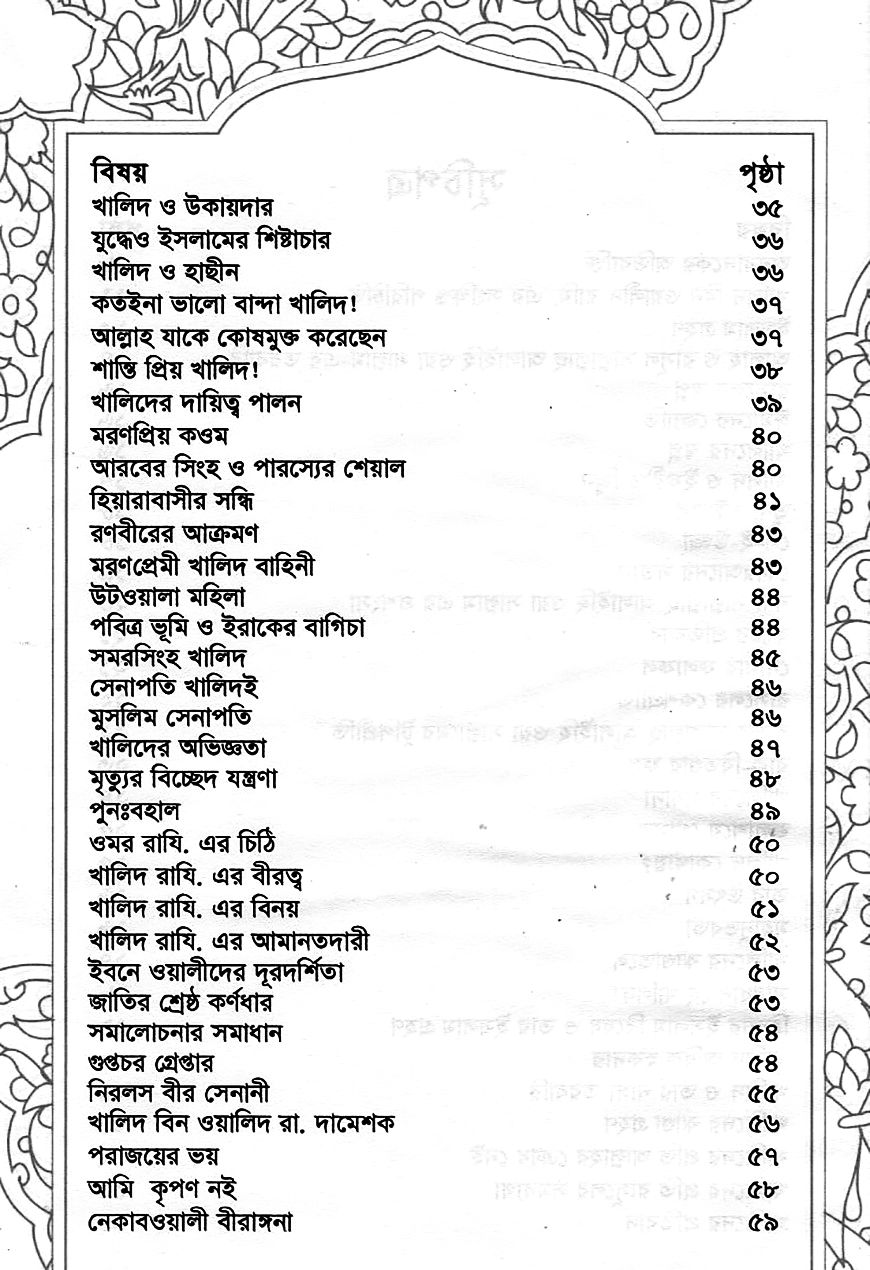 বিষয় পৃষ্ঠা
খালিদ ও উকায়দার ৩৫
যুদ্ধেও ইসলামের শিষ্টাচার ৩৬
খালিদ ও হাছীন ৩৬
কতইনা ভালো বান্দা খালিদ! ৩৭
আল্লাহ যাকে কোষমুক্ত করেছেন ৩৭
শান্তি প্রিয় খালিদ! ৩৮
খালিদের দায়িত্ব পালন ৩৯
মরণপ্রিয় কওম ৪০
আরবের সিংহ ও পারস্যের শেয়াল ৪০
হিয়ারাবাসীর সন্ধি ৪১
রণবীরের আক্রমণ ৪৩
মরণপ্রেমী খালিদ বাহিনী ৪৩
উটওয়ালা মহিলা ৪৪
পবিত্র ভূমি ও ইরাকের বাগিচা ৪৪
সমরসিংহ খালিদ ৪৫
সেনাপতি খালিদই ৪৬
মুসলিম সেনাপতি ৪৬
খালিদের অভিজ্ঞতা ৪৭
মৃত্যুর বিচ্ছেদ যন্ত্রণা ৪৮
পুনঃবহাল ৪৯
ওমর রাযি. এর চিঠি ৫০
খালিদ রাযি. এর বীরত্ব ৫০
খালিদ রাযি. এর বিনয় ৫১
খালিদ রাযি. এর আমানতদারী ৫২
ইবনে ওয়ালীদের দূরদর্শিতা ৫৩
জাতির শ্রেষ্ঠ কর্ণধার ৫৩
সমালোচনার সমাধান ৫৪
গুপ্তচর গ্রেপ্তার ৫৪
নিরলস বীর সেনানী ৫৫
খালিদ বিন ওয়ালিদ রা. দামেশক ৫৬
পরাজয়ের ভয় ৫৭
আমি কৃপণ নই ৫৮
নেকাবওয়ালী বীরাঙ্গনা ৫৯